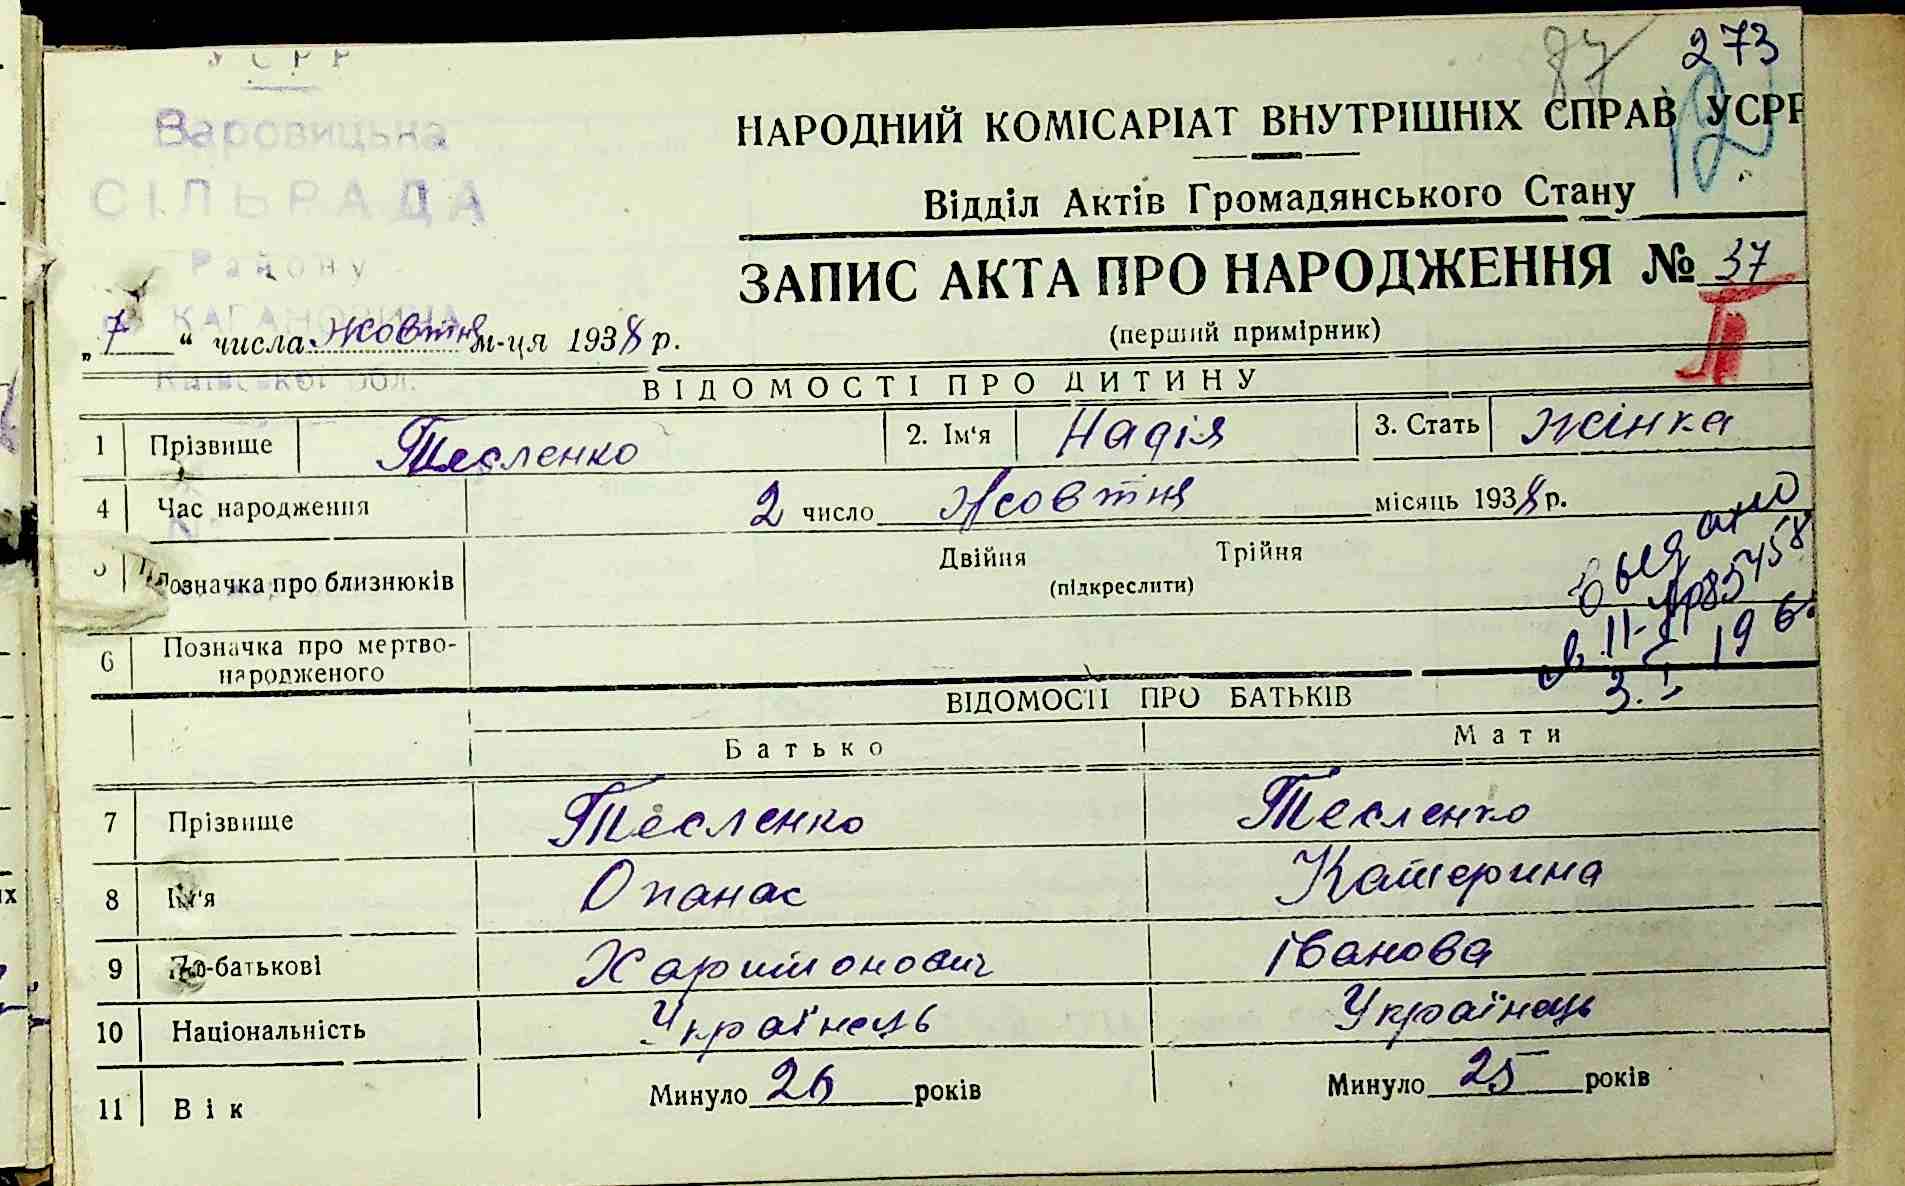 УСРР
Варовицька
СІЛЬРАДА
Району
КАГАНОВИЧА
Київської обл.
87
273
НАРОДНИЙ КОМІСАРІАТ ВНУТРІШНІХ СПРАВ УСРР
Відділ Актів Громадянського Стану
ЗАПИС АКТА ПРО НАРОДЖЕННЯ № 37
(перший примірник)
„7“ числа Жовтня м-ця 1938 р.
ВІДОМОСТІ ПРО ДИТИНУ
1 Прізвище Тесленко 2. Ім'я Надія 3. Стать жінка
4 Час народження 2 число Жовтня місяць 1938 р.
5 Позначка про близнюків Двійня Трійня
(підкреслити)
выдано
6 Позначка про мертво-
народженого
ВІДОМОСТІ ПРО БАТЬКІВ
Батько Мати
7 Прізвище Тесленко Тесленко
8 Ім'я Опанас Катерина
9 По-батькові Харитонович Іванова
10 Національність Українець Українець
11 Вік Минуло 26 років Минуло 25 років